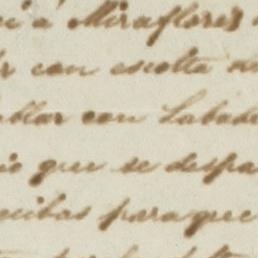 a Miraflores
con escolta
ablar con Labad
que se despa
ecibas para que